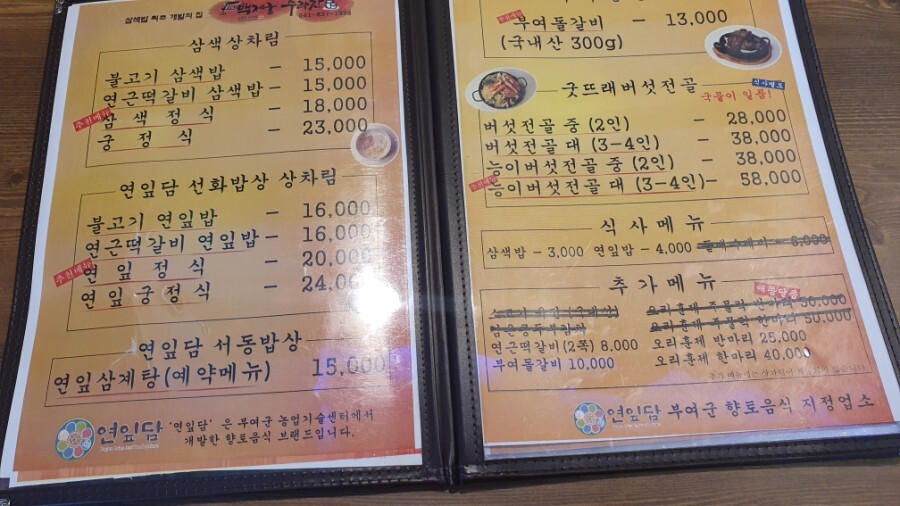 삼색밥 최초 개발의 집
041-837-1253
삼색상차림
불고기 삼색밥 - 15,000
연근떡갈비 삼색밥 - 15,000
추천메뉴
삼 색 정 식 - 18,000
궁 정 식 - 23,000
연잎담 선화밥상 상차림
불고기 연잎밥 - 16,000
연근떡갈비 연잎밥 - 16,000
추천메뉴
연 잎 정 식 - 20,000
연잎 궁정식 - 24,000
연잎담 서동밥상
연잎삼계탕(예약메뉴) 15,000
연잎담
'연잎담' 은 부여군 농업기술센터에서
개발한 향토음식 브랜드입니다.
부여돌갈비 - 13,000
(국내산 300g)
굿뜨래버섯전골
식사별도
국물이 일품!
버섯전골 중 (2인) - 28,000
버섯전골 대 (3-4인) - 38,000
능이버섯전골 중 (2인) - 38,000
능이버섯전골 대 (3-4인)- 58,000
식사메뉴
삼색밥 - 3,000 연잎밥 - 4,000
추가메뉴
연근떡갈비(2쪽) 8,000
부여돌갈비 10,000
오리훈제 반마리 25,000
오리훈제 한마리 40,000
연잎담 부여군 향토음식 지정업소